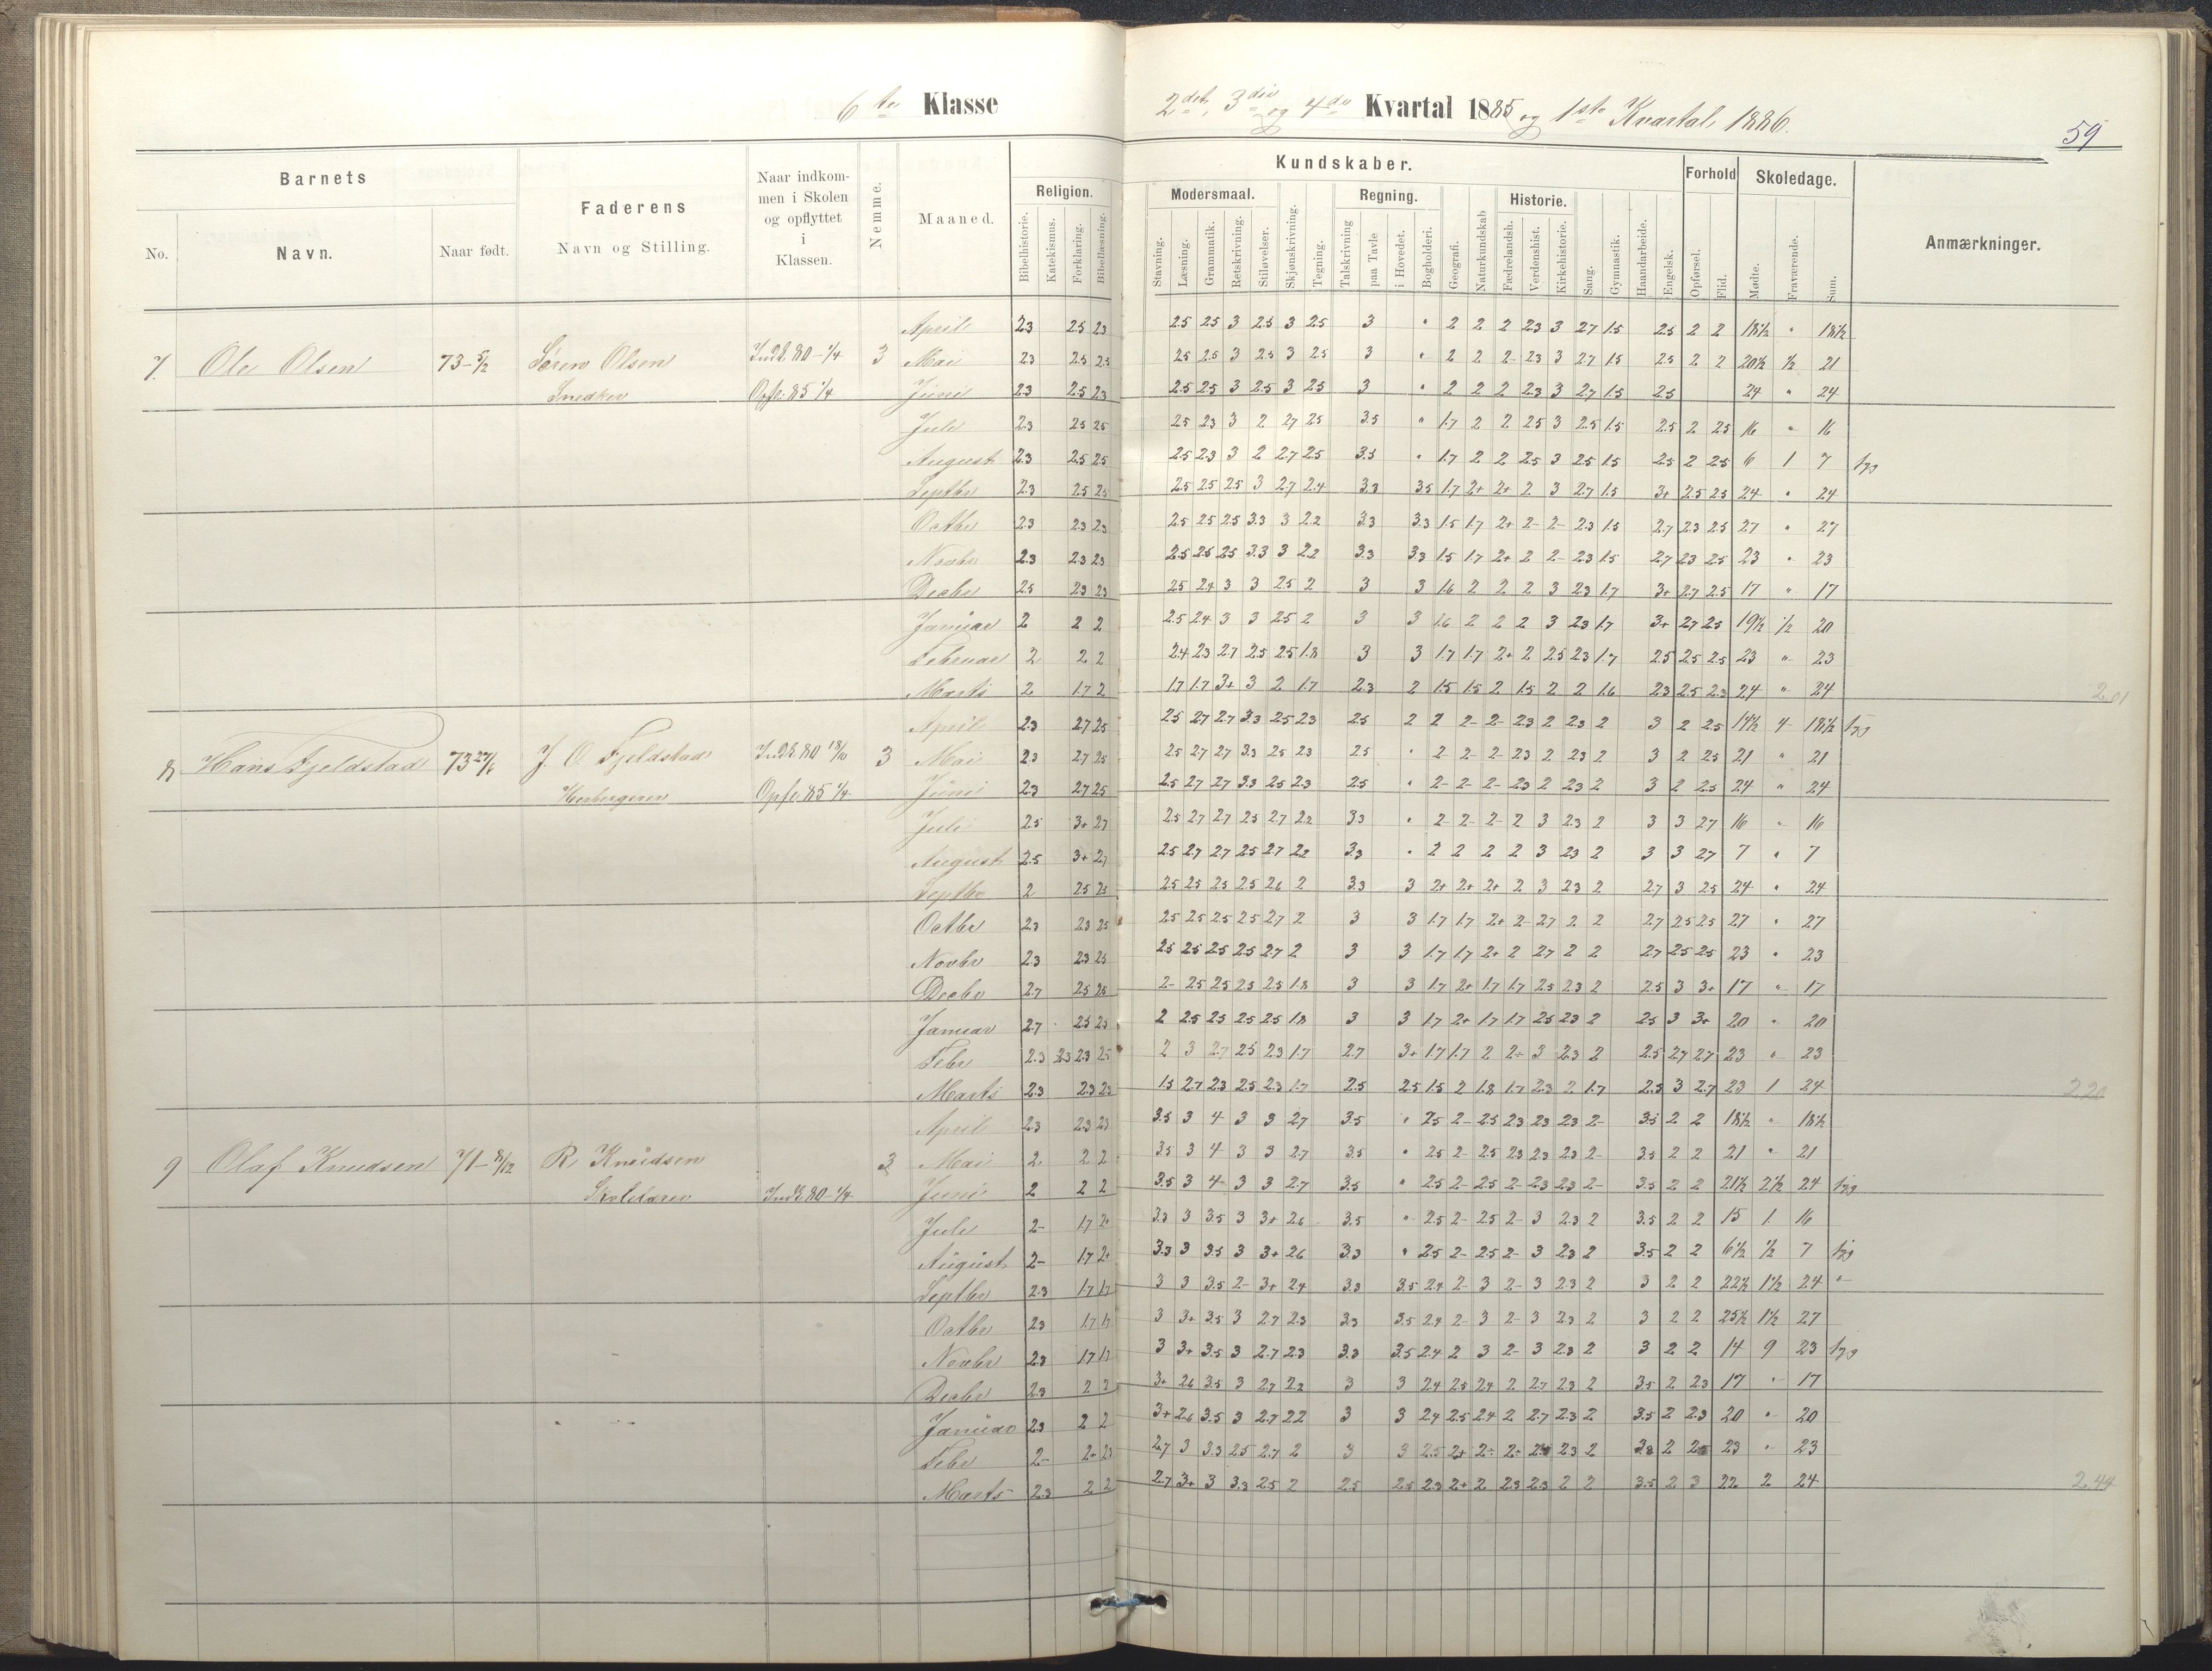 6te Klasse
2det, 3die og 4de Kvartal 1885 og 1ste Kvartal 1886.
59
Barnets
Faderens
Naar indkommen i Skolen og opflyttet i Klassen.
Nemme.
Maaned.
Kundskaber.
Forhold
Skoledage.
Anmærkninger.
No.
Navn.
Naar født.
Navn og Stilling.
Religion.
Modersmaal.
Regning.
Historie.
Bibelhistorie.
Katekismus.
Forklaring.
Bibellæsning.
Stavning.
Læsning.
Grammatik.
Retskrivning.
Stiløvelser.
Skjønskrivning.
Tegning.
Talskrivning
paa Tavle
i Hovedet.
Bogholderi.
Geografi.
Naturkundskab
Fædrelandsh.
Verdenshist.
Kirkehistorie.
Sang.
Gymnastik.
Haandarbeide.
Engelsk.
Opførsel.
Flid.
Mødte.
Fraværende.
Sum.
April 2.3 2.5 2.3 2.5 2.5 3 2.5 3 2.5 3 " 2 2 2 2.3 3 2.7 1.5 2.5 2 2 18½ " 18½
7. Ole Olsen 73-5/2 Søren Olsen Indk. 80-1/4 3 Mai 2.3 2.5 2.5 2.5 2.5 3 2.5 3 2.5 3 " 2 2 2- 2.3 3 2.7 1.5 2.5 2 2 20½ ½ 21
Snedker Opfl. 85 1/4 Juni 2.3 2.5 2.3 2.5 2.5 3 2.5 3 2.5 3 " 2 2 2 2.3 3 2.7 1.5 2.5 24 " 24
Juli 2.3 2.5 2.5 2.5 2.3 3 2 2.7 2.5 3.5 " 1.7 2 2 2.5 3 2.5 1.5 2.5 2 2.5 16 " 16
August 2.3 2.5 2.5 2.5 2.3 3 2 2.7 2.5 3.5 " 1.7 2 2 2.5 3 2.5 1.5 2.5 2 2.5 6 1 7
Septbr 2.3 2.5 2.5 2.5 2.5 2.5 3 2.7 2.4 3.3 3.5 1.7 2+ 2+ 2 3 2.7 1.5 3+ 2.5 2.5 24 " 24
Octbr 2.3 2.3 2.3 2.5 2.5 2.5 3.3 3 2.2 3.3 3.3 1.5 1.7 2+ 2- 2- 2.3 1.5 2.7 2.3 2.5 27 " 27
Novbr 2.3 2.3 2.3 2.5 2.5 2.5 3.3 3 2.2 3.3 3.3 1.5 1.7 2+ 2 2- 2.3 1.5 2.7 2.3 2.5 23 " 23
Decbr 2.5 2.3 2.3 2.5 2.4 3 3 2.5 2 3 3 1.6 2 2 2 3 2.3 1.7 3+ 2.7 2.5 17 " 17
Januar 2 2 2 2.5 2.4 3 3 2.5 2 3 3 1.6 2 2 2 3 2.3 1.7 3+ 2.7 2.5 19½ ½ 20
Februar 2 2 2 2.4 2.3 2.7 2.5 2.5 1.8 3 3 1.7 1.7 2+ 2 2.5 2.3 1.7 2.5 2.5 2.5 23 " 23
Marts 2 1.7 2 1.7 1.7 3+ 3 2 1.7 2.3 2 1.5 1.5 2 1.5 2 2 1.6 2.3 2.5 2.3 24 " 24 2.01
April 2.3 2.7 2.5 2.5 2.7 2.7 3.3 2.5 2.3 2.5 2 2 2- 2- 2.3 2 2.3 2 3 2 2.5 14½ 4 18½
8 Hans Fjeldstad 73 27/6 J. O. Fjeldstad Indk. 80 18/10 3 Mai 2.3 2.7 2.5 2.5 2.7 2.7 3.3 2.5 2.3 2.5 " 2 2- 2- 2.3 2 2.3 2 3 2 2.5 21 " 21
Herbergerer Opfl. 85 1/4 Juni 2.3 2.7 2.5 2.5 2.7 2.7 3.3 2.5 2.3 2.5 " 2- 2- 2- 2.3 2 2.3 2 3 2 2.5 24 " 24
Juli 2.5 3+ 2.7 2.5 2.7 2.7 2.5 2.7 2.2 3.3 " 2- 2- 2- 2 3 2.3 2 3 3 2.7 16 " 16
August 2.5 3+ 2.7 2.5 2.7 2.7 2.5 2.7 2.2 3.3 " 2 2 2 2 3 2.3 2 3 3 2.7 7 " 7
Septbr 2 2.5 2.5 2.5 2.5 2.5 2.5 2.6 2 3.3 3 2+ 2+ 2+ 2 3 2.3 2 2.7 3 2.5 24 " 24
Octbr 2.3 2.3 2.5 2.5 2.5 2.5 2.5 2.7 2 3 3 1.7 1.7 2+ 2- 2.7 2 2 2.7 2.5 2.5 27 " 27
Novbr 2.3 2.3 2.5 2.5 2.5 2.5 2.5 2.7 2 3 3 1.7 1.7 2+ 2 2.7 2 2 2.7 2.5 2.5 23 " 23
Decbr 2.7 2.5 2.5 2- 2.5 2.5 2.5 2.5 1.8 3 3 1.7 2+ 1.7 1.7 2.5 2.3 2 2.5 3 3+ 17 " 17
Januar 2.7 2.5 2.5 2 2.5 2.5 2.5 2.5 1.8 3 3 1.7 2+ 1.7 1.7 2.5 2.3 2 2.5 3 3+ 20 " 20
Febr 2.3 2.3 2.3 2.5 2 3 2.7 2.5 2.3 1.7 2.7 3+ 1.7 1.7 2 2÷ 3 2.3 2 2.5 2.7 2.7 23 " 23
Marts 2.3 2.3 2.3 1.5 2.7 2.3 2.5 2.3 1.7 2.5 2.5 1.5 2 1.8 1.7 2.3 2 1.7 2.3 3 2.7 23 1 24 2.20
April 2.3 2.3 2.3 3.5 3 4 3 3 2.7 3.5 " 2.5 2- 2.5 2.3 2.3 2.3 2- 3.5 2 2 18½ " 18½
9 Olaf Knudsen 71-8/12 R. Knudsen 3 Mai 2 2 2 3.5 3 4 3 3 2.7 3.5 " 2.5 2- 2.5 2.3 2.3 2.3 2- 3.5 2 2 21 " 21
Indk 80-1/4 Juni 2 2 2 3.5 3 4 3 3 2.7 3.5 " 2.5 2- 2.5 2- 2.3 2.3 2- 3.5 2 2 21½ 2½ 24
Juli 2- 1.7 2+ 3.3 3 3.5 3 3+ 2.6 3.5 " 2.5 2- 2.5 2- 3 2.3 2 3.5 2 2 15 1 16
August 2- 1.7 2+ 3.3 3 3.5 3 3+ 2.6 3.3 " 2.5 2- 2.5 2- 3 2.3 2 3.5 2 2 6½ ½ 7
Septbr 2.3 1.7 1.7 3 3 3.5 2- 3+ 2.4 3.3 3.5 2.4 2- 3 2- 3 2.3 2 3 2 2 22½ 1½ 24 "
Octbr 2.3 1.7 1.7 3 3+ 3.5 3 2.7 2.3 3.3 3.5 2.4 2- 3 2- 3 2.3 2 3 2 2 25½ 1½ 27
Novbr 2.3 1.7 1.7 3 3+ 3.5 3 2.7 2.3 3.3 3.5 2.4 2 3 2- 3 2.3 2 3 2 2 14 9 23
Decbr 2.3 2 2 3+ 2.6 3.5 3 2.7 2.2 3 3 2.4 2.5 2.4 2 2.7 2.3 2 3.5 2 2.3 17 " 17
Januar 2.3 2 2 3+ 2.6 3.5 3 2.7 2.2 3 3 2.4 2.5 2.4 2 2.7 2.3 2 3.5 2 2.3 20 " 20
Febr 2- 2+ 2.3 2.7 3 3.3 2.5 2.7 2 3 3 2.5 2+ 2÷ 2÷ 2.3 2 2 23 " 23
Marts 2.3 2 2 2.7 3+ 3 3.3 2.5 2 2.5 2.5 2.3 2+ 2 2.3 2.3 2 2 3.5 2 3 22 2 24 2.44